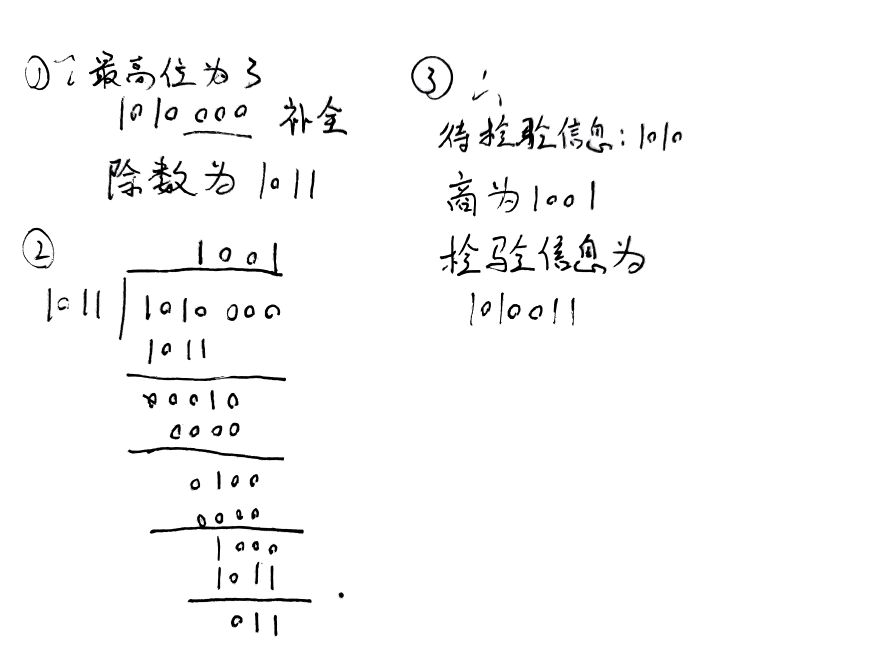 ① ∵最高位为3
1010000 补全
除数为1011
②
1001
1011 1010000
1011
00010
0000
0100
0000
1000
1011
011
③ ∴
待检验信息:1010
商为1001
检验信息为
1010011